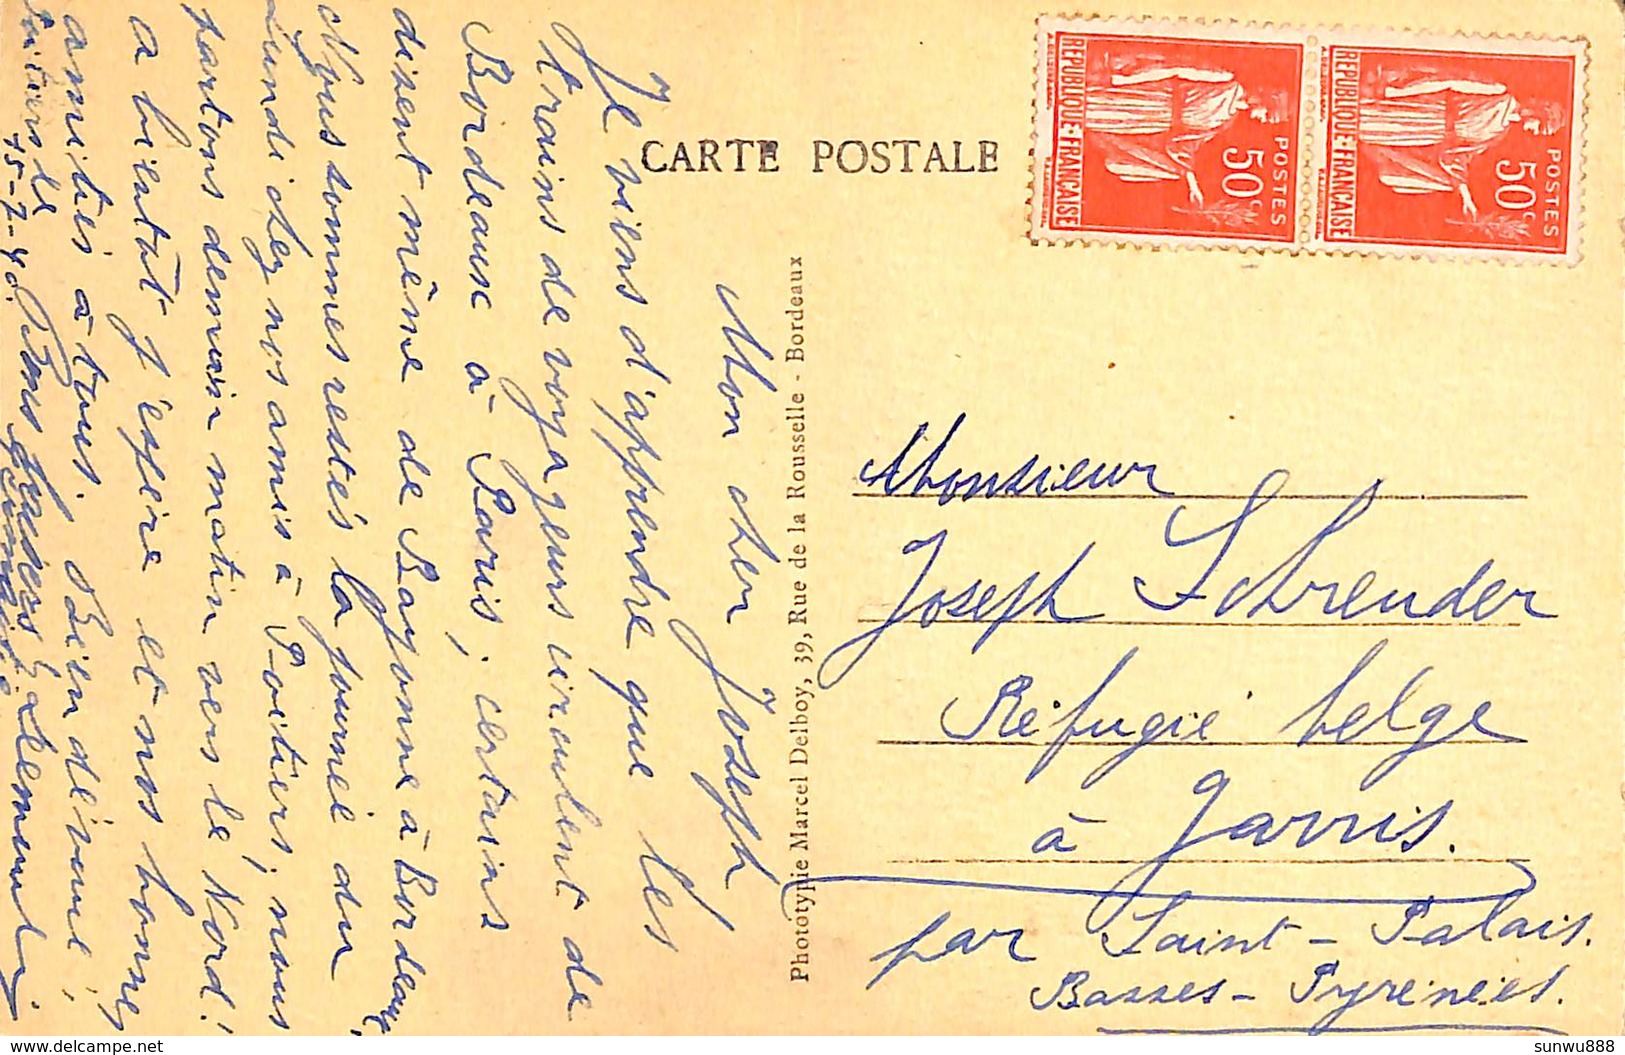 CARTE POSTALE
REPUBLIQUE FRANÇAISE
POSTES
50c
REPUBLIQUE FRANÇAISE
POSTES
50c
Photototypie Marcel Delboy, 39, Rue de la Rousselle - Bordeaux
Mon cher Joseph
Je viens d'apprendre que les
trains de voyageurs circulent de
Bordeaux à Paris, certains
disent même de Bayonne à Bordeaux,
Nous sommes restés la journée du
Lundi chez nos amis à Poitiers, nous
partons demain matin vers le Nord!
a bientôt j'espère et nos bonnes
amitiés à tous. Bien dévoué,
15-7-40.
Monsieur
Joseph Schreuder
Réfugié belge
à Jarris.
par Saint-Palais.
Basses-Pyrénées.
www.delcampe.net
sunwu888